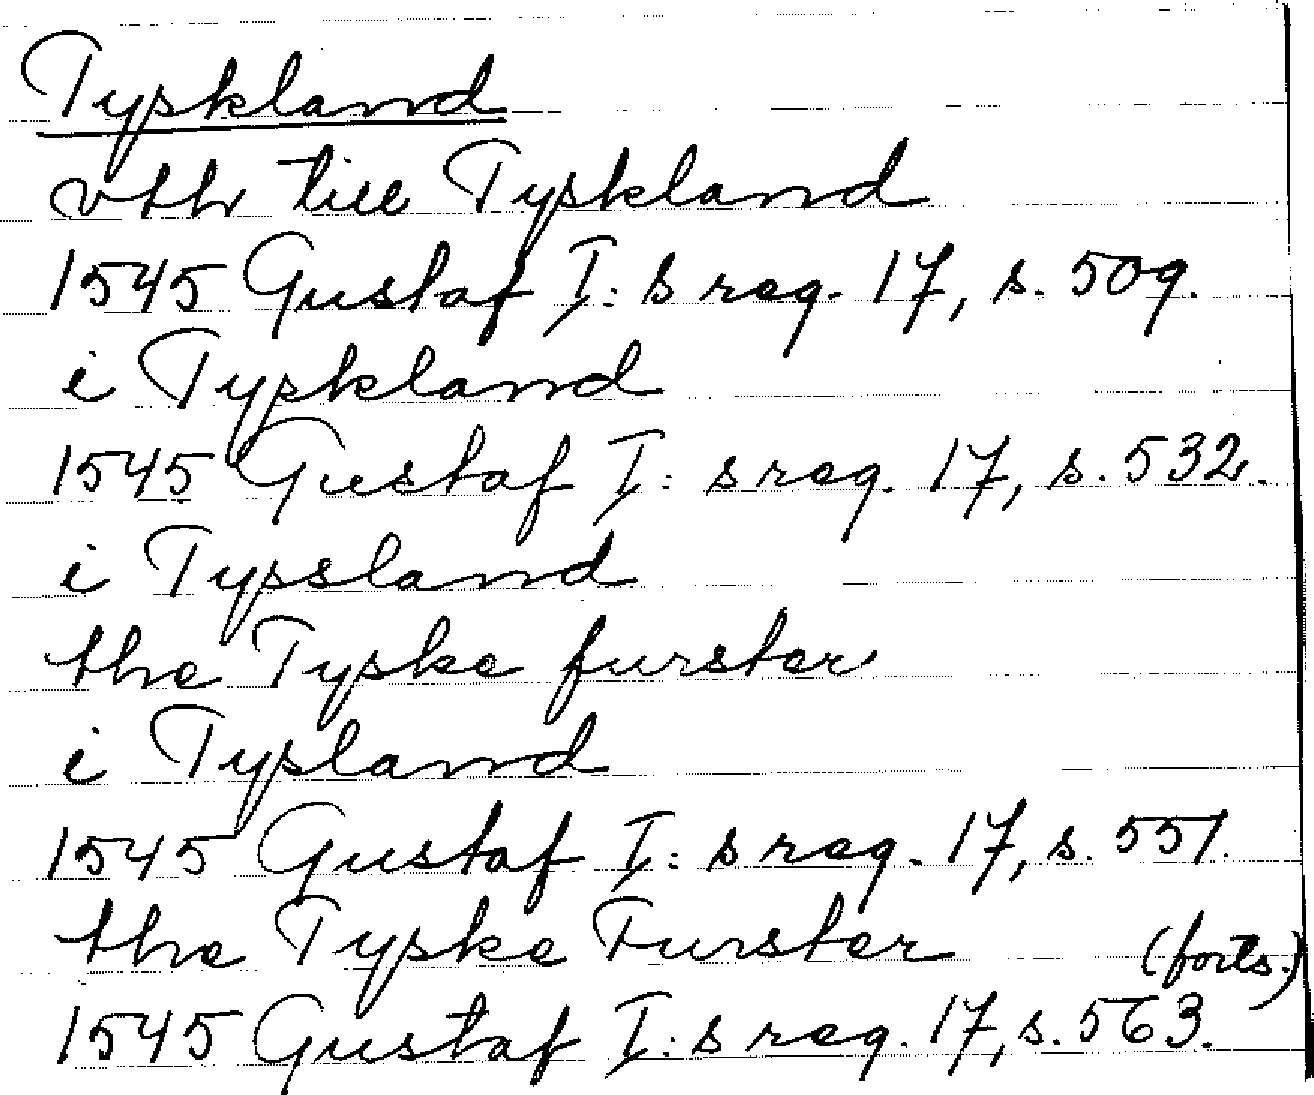 Tyskland
vth till Tyskland
1545 Gustaf I:s reg. 17, s. 509.
i Tyskland
1545 Gustaf I:s reg. 17, s. 532.
i Tyssland
the Tyske furster
i Tysland
1545 Gustaf I:s reg. 17, s. 551.
the Tyske Furster (forts.)
1545 Gustaf I:s reg. 17, s. 563.